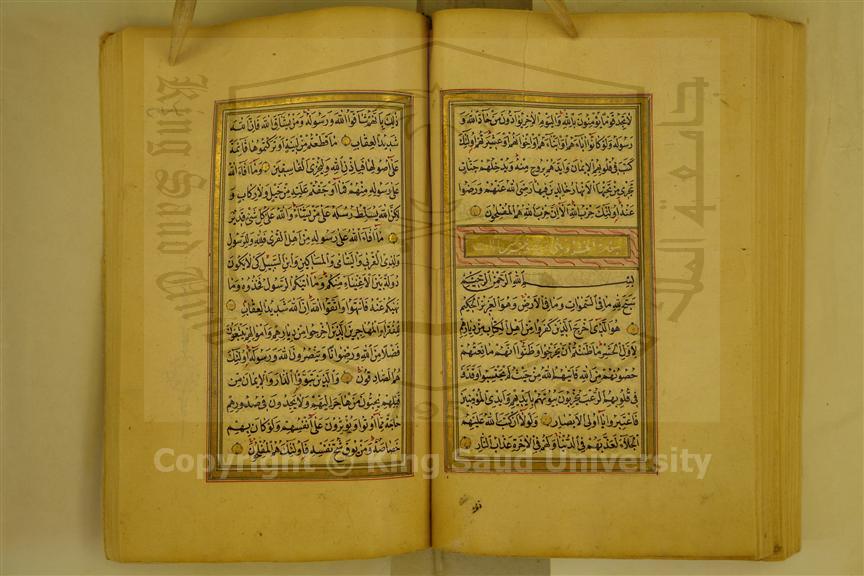 لا تجد قوما يؤمنون بالله واليوم الآخر يوادون من حاد الله و
رسوله ولو كانوا آباءهم أو أبناءهم أو إخوانهم أو عشيرتهم أولئك
كتب في قلوبهم الإيمان وأيدهم بروح منه ويدخلهم جنات
تجري من تحتها الأنهار خالدين فيها رضي الله عنهم ورضوا
عنه أولئك حزب الله ألا إن حزب الله هم المفلحون
سورة الحشر
بسم الله الرحمن الرحيم
سبح لله ما في السموات وما في الأرض وهو العزيز الحكيم
هو الذي أخرج الذين كفروا من أهل الكتاب من ديارهم
لأول الحشر ما ظننتم أن يخرجوا وظنوا أنهم مانعتهم
حصونهم من الله فأتيهم الله من حيث لم يحتسبوا وقذف
في قلوبهم الرعب يخربون بيوتهم بأيديهم وأيدي المؤمنين
فاعتبروا يا أولي الأبصار ولولا أن كتب الله عليهم
الجلاء لعذبهم في الدنيا ولهم في الآخرة عذاب النار
ذلك بأنهم شاقوا الله ورسوله ومن يشاق الله فإن الله
شديد العقاب ما قطعتم من لينة أو تركتموها قائمة
على أصولها فبإذن الله وليخزي الفاسقين وما أفاء الله
على رسوله منهم فما أوجفتم عليه من خيل ولا ركاب و
لكن الله يسلط رسله على من يشاء والله على كل شيء قدير
ما أفاء الله على رسوله من أهل القرى فلله وللرسول
ولذي القربى واليتامى والمساكين وابن السبيل كي لا يكون
دولة بين الأغنياء منكم وما آتيكم الرسول فخذوه وما
نهيكم عنه فانتهوا واتقوا الله إن الله شديد العقاب
للفقراء المهاجرين الذين أخرجوا من ديارهم وأموالهم يبتغون
فضلا من الله ورضوانا وينصرون الله ورسوله أولئك
هم الصادقون والذين تبوؤا الدار والإيمان من
قبلهم يحبون من هاجر إليهم ولا يجدون في صدورهم
حاجة مما أوتوا ويؤثرون على أنفسهم ولو كان بهم
خصاصة ومن يوق شح نفسه فأولئك هم المفلحون
King Saud University
جامعة الملك
1957
Copyright © King Saud University